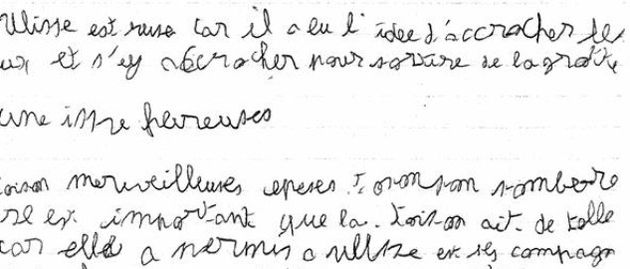 Ulisse est ruse car il a eu l'idee d'accrocher le
ux et s'ey accrocher pour sortire de la grotte
une isse heureuses
toison merveilleuses epeses toison son sombere
il est important que la toison ait de telle
car elle a permis a ullise et ses compagn